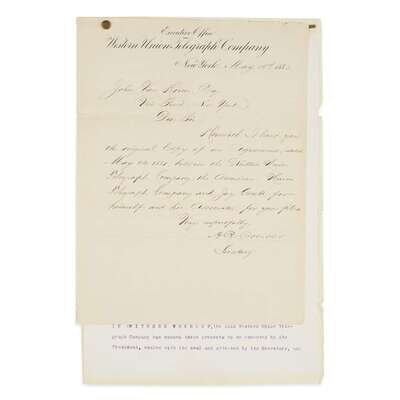 Executive Office
Western Union Telegraph Company
New York, May 18th, 188
John Van Horne Esq
New York
Dear Sir
Herewith I hand you
the original Copy of an agreement, dated
May 1881, between the Western Union
Telegraph Company the American Union
Telegraph Company and Jay Gould for
himself and his Associates, for your files
Very respectfully
A.R. Brewer
Secretary
IN WITNESS WHEREOF, the said Western Union Tele-
graph Company has caused these presents to be executed by its
President, sealed with its seal and attested by its Secretary, and